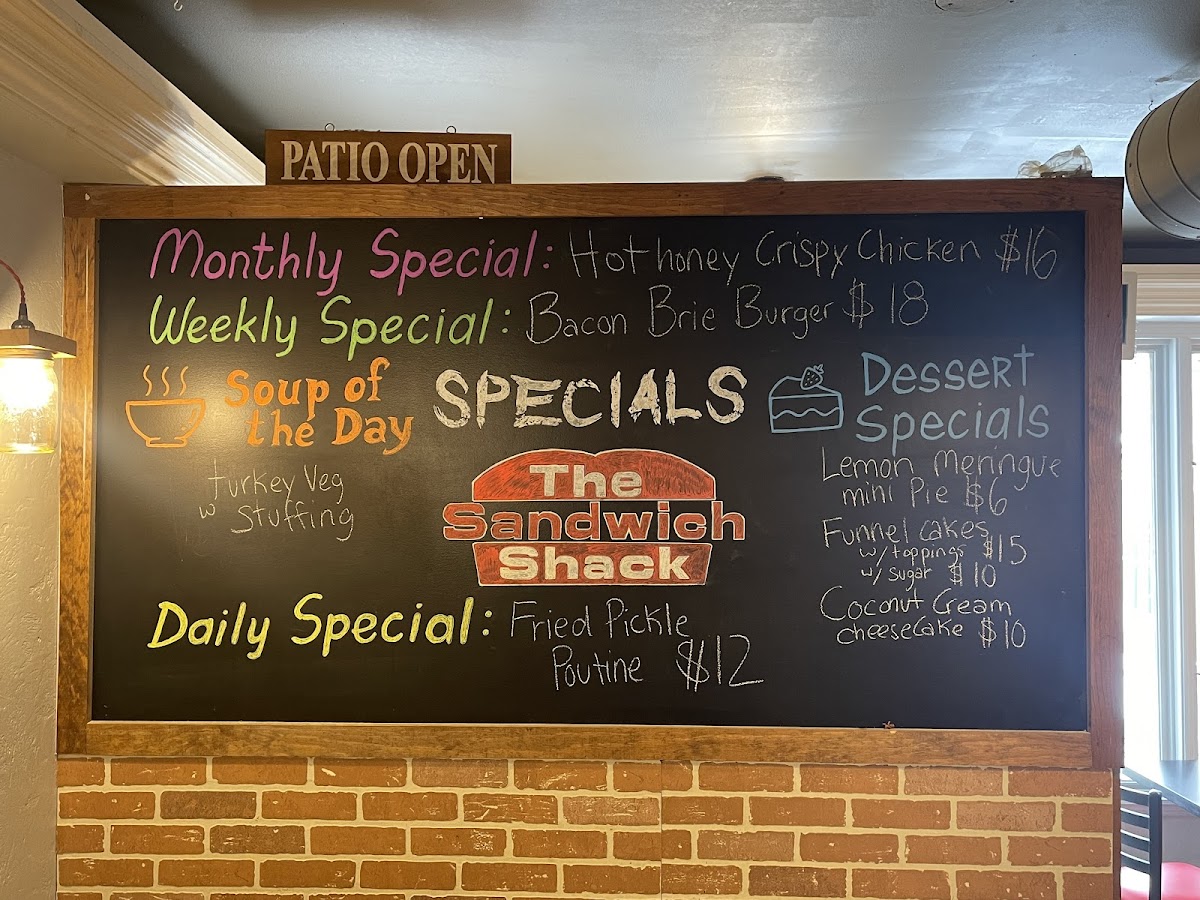 PATIO OPEN
Monthly Special: Hot honey Crispy Chicken $16
Weekly Special: Bacon Brie Burger $18
Soup of
the Day
turkey Veg
w Stuffing
SPECIALS
The
Sandwich
Shack
Dessert
Specials
Lemon Meringue
mini Pie $6
Funnel cakes
w/toppings $15
w/ sugar $10
Coconut Cream
cheesecake $10
Daily Special: Fried Pickle
Poutine $12